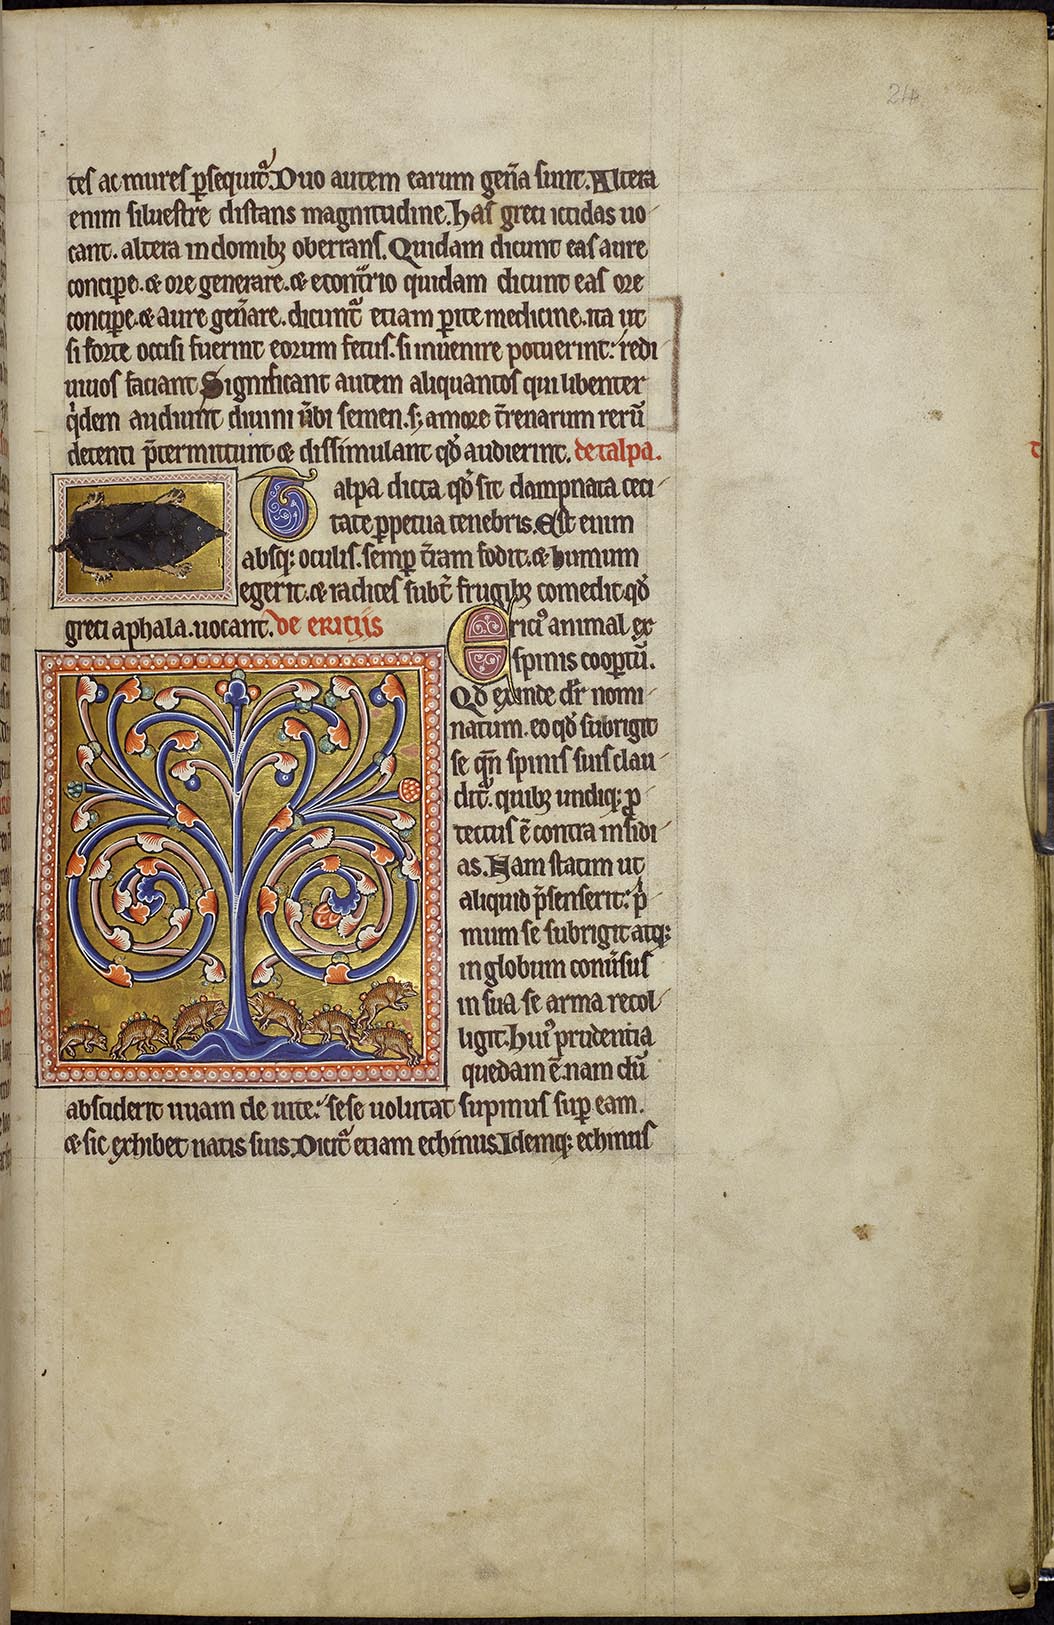 24
tes ac mures ꝑsequit᷑. Duo autem earum gen̄a sunt. Altera
enim siluestre distans magnitudine. Has greci ictidas uo
cant. altera in domibꝫ oberrans. Quidam dicunt eas aure
concipe. & ore generare. & econtᷓrio quidam dicunt eas ore
concipe. & aure gen̄are. dicunt᷑ etiam ꝑite medicine. ita ut
si forte occisi fuerint eorum fetus. si inuenire potuerint: redi
uiuos faciant Significant autem aliquantos qui libenter
q̇dem audiunt diuini ūbi semen. sꝫ amore t̄renarum rerū
detenti p̄termittunt & dissimulant qd̓ audierint. de talpa.
Talpa dicta qd̓ sit dampnata ceci
tate ꝑpetua tenebris. Est enim
absqꝫ oculis. semꝑ t̄ram fodit. & humum
egerit. & radices subt̄ frugibꝫ comedit. qd̓
greci aphala. uocant. de eritijs
Ericiꝰ animal ex
spinis cooꝑtū.
Qd̓ exinde dr̄ nomi
natum. eo qd̓ subrigit
se qn̄ spinis suis clau
dit᷑. quibꝫ undiqꝫ ꝓ
tectus ē contra insidi
as. Nam statim ut
aliquid p̄senserit: ṗ
mum se subrigit atqꝫ
in globum conūsus
in sua se arma recol
ligit. Huiꝰ prudentia
quedam ē. nam cū
absciderit uuam de uite: sese uolutat supinus suꝑ eam.
& sic exhibet natis suis. Dicit᷑ etiam echinus. Idemqꝫ echinus